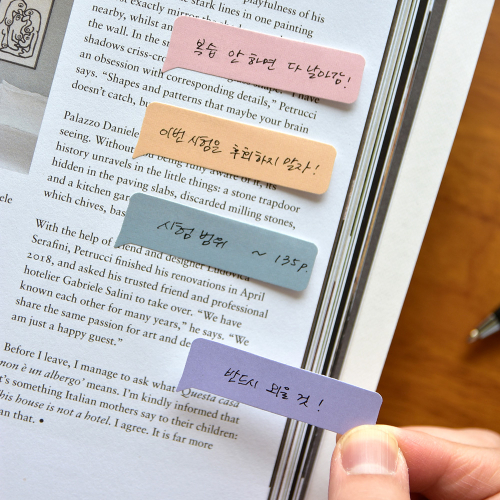 playfulness of his
stark lines in one painting
nearby, whilst an
exactly mirror the
the wall. In the s
복습 안하면 다 날아감!
shadows criss-cr
an obsession with corresponding details," Petrucci
says. "Shapes and patterns that maybe your brain
doesn't catch, bu
이번 시험은 후회하지 말자!
Palazzo Daniele
seeing. Without being fully aware of it, its
history unravels in the little things: a stone trapdoor
hidden in the paving slabs, discarded milling stones,
and a kitchen gar
which chives, bas
시험범위 ~ 135p.
With the help of friend and designer Ludovica
Serafini, Petrucci finished his renovations in April
2018, and asked his trusted friend and professional
hotelier Gabriele Salini to take over. "We have
known each other for many years," he says. "We
share the same passion for art and de
am just a happy guest."
반드시 외울 것!
Before I leave, I manage to ask what "Questa casa
non è un albergo' means. I'm kindly informed that
t's something Italian mothers say to their children:
his house is not a hotel. I agree. It is far more
an that. •